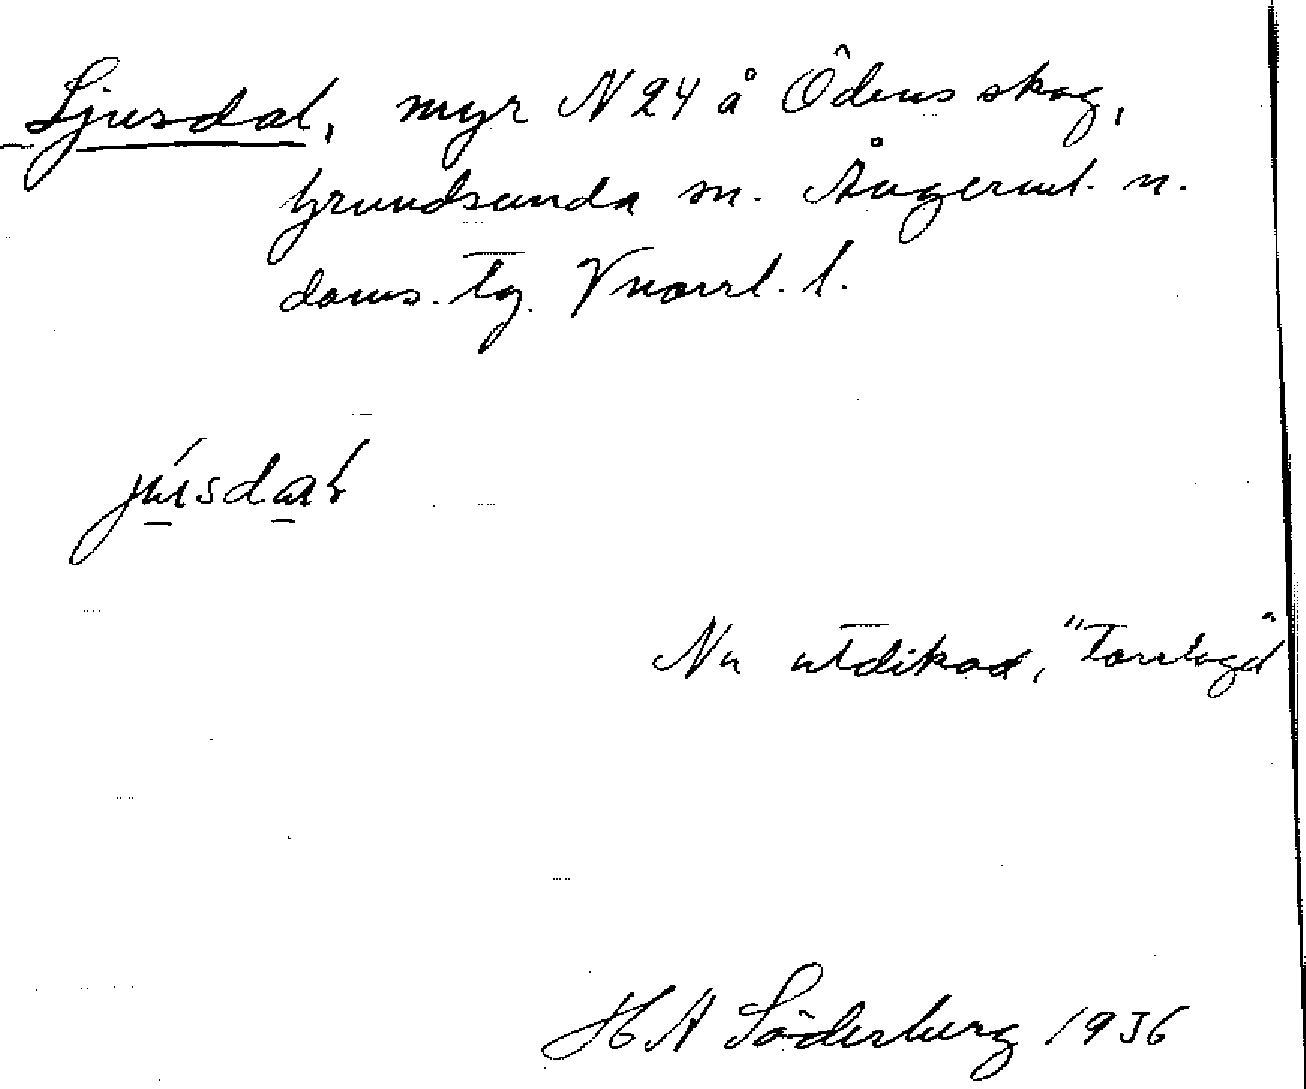 Ljusdal, myr N 24 å Ödens skog,
Grundsunda sn. Ångerml. n.
doms. tg. Vnorrl. l.
Nu utdikad, "Torrlagd"
H A Söderberg 1936